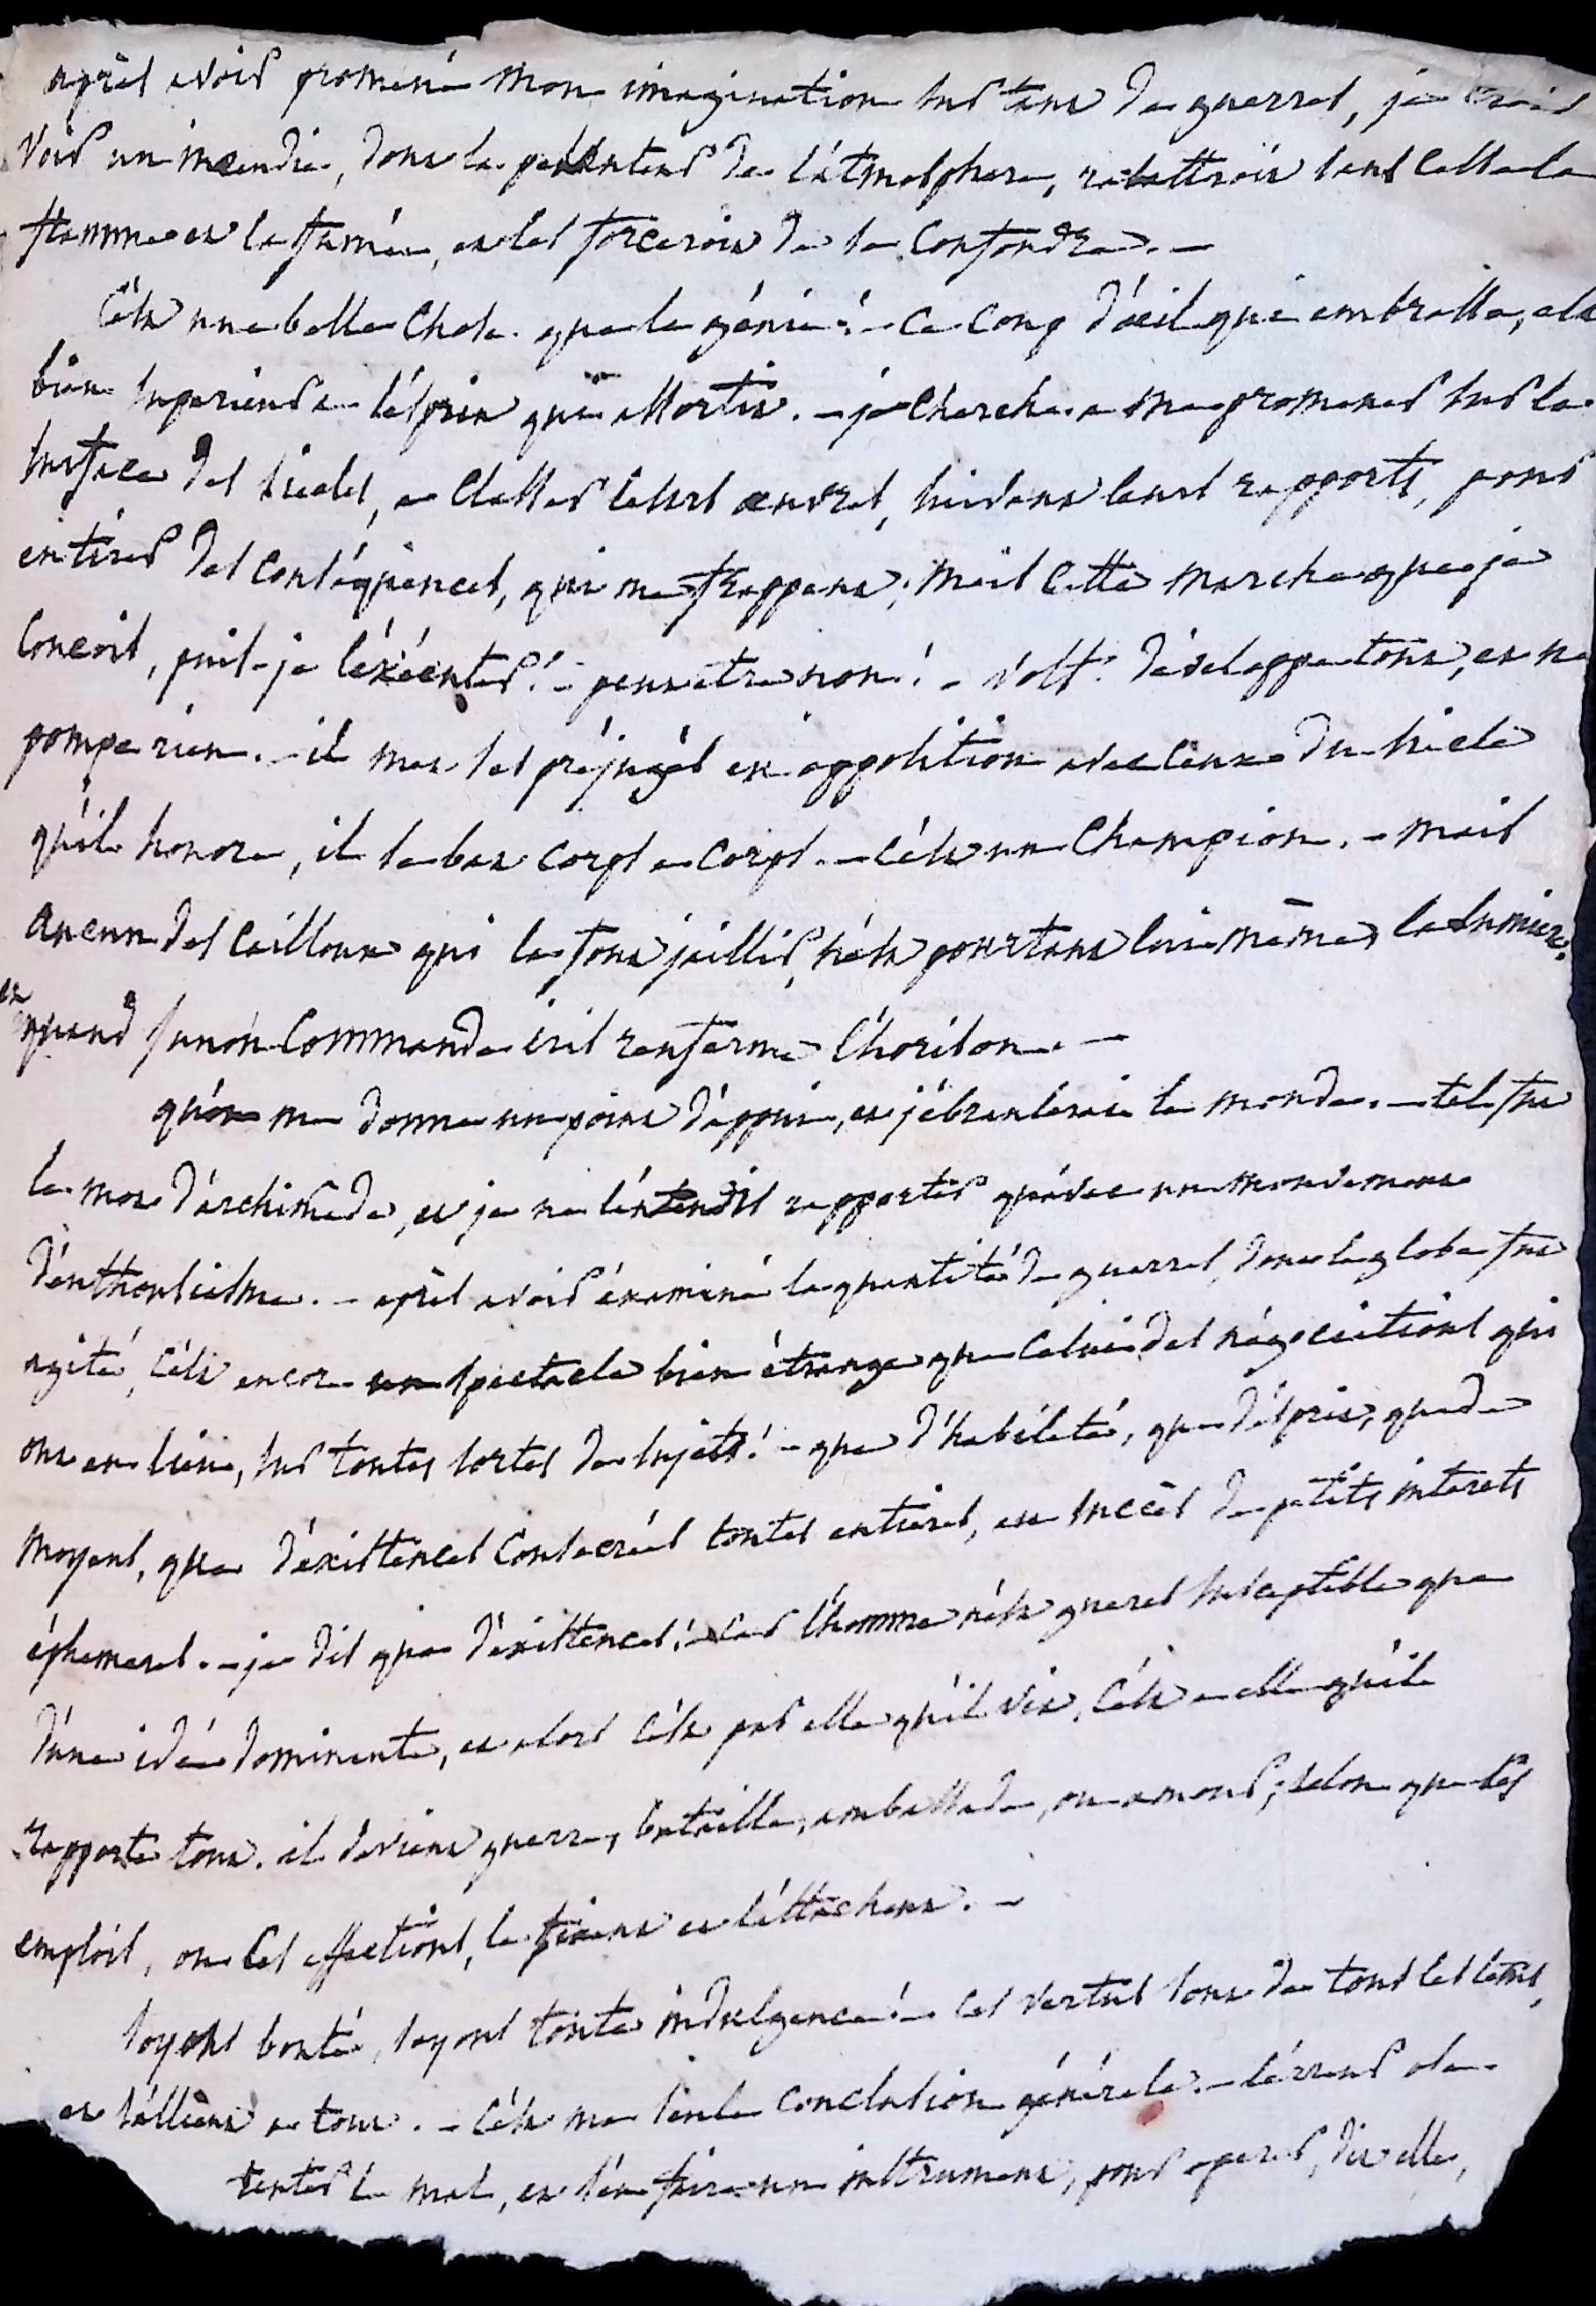 après avoir promené mon imagination sur tant de guerres, je crois
voir un incendie, dont la pesanteur de l'atmosphere, rabattroit sans cesse la
flamme et la fumée, et les forceroit de se confondre. —
C'est une belle chose que le génie ! - Ce coup d'œil qui embrasse, est
bien superieur a l'esprit qui assortit. - je cherche a me promener sur la
surface des siecles, a classer leurs œuvres, suivant leurs rapports, pour
en tirer des conséquences, qui me frappent ; mais cette marche que je
concois, puis-je l'éxécuter ! - peut etre non ! - Volt: développe tout, et ne
pompe rien. - il met les préjugés en opposition avec ceux du siecle
qu'il honore, il se bat corps a corps. - c'est un champion. - mais
aucun des cailloux qui la font jaillir, n'est pourtant lui même, la lumiere.
et quand Junon commande iris renferme l'horison. —
qu'on me donne un point d'appui, et j'ébranlerai le monde. - tel fut
le mot d'archimede, et je ne l'entendis rapporter qu'avec un mouvement
d'enthousiasme. - après avoir éxaminé la quantité de guerres, dont le globe fut
agité, c'est encore un spectacle bien étrange que celui des négociations qui
ont eu lieu, sur toutes sortes de sujets ! - que d'habileté, que d'esprit, que de
moyens, que d'existences consacrées toutes entieres, au succès de petits interets
éphemeres. - je dis que d'existences ! - car l'homme n'est gueres susceptible que
d'une idée dominante, et alors c'est par elle qu'il vit, c'est a elle qu'il
rapporte tout. il devient guerre, bataille, ambassade, ou amour ; selon que ses
emplois, ou ses affections, le fixent et l'attachent. —
soyons bonté, soyons toute indulgence ! - ces vertus sont de tous les tems,
et s'allient a tout. - c'est ma seule conclusion générale. - l'erreur ose
tenter le mal, et s'en faire un instrument, pour operer, dit elle,